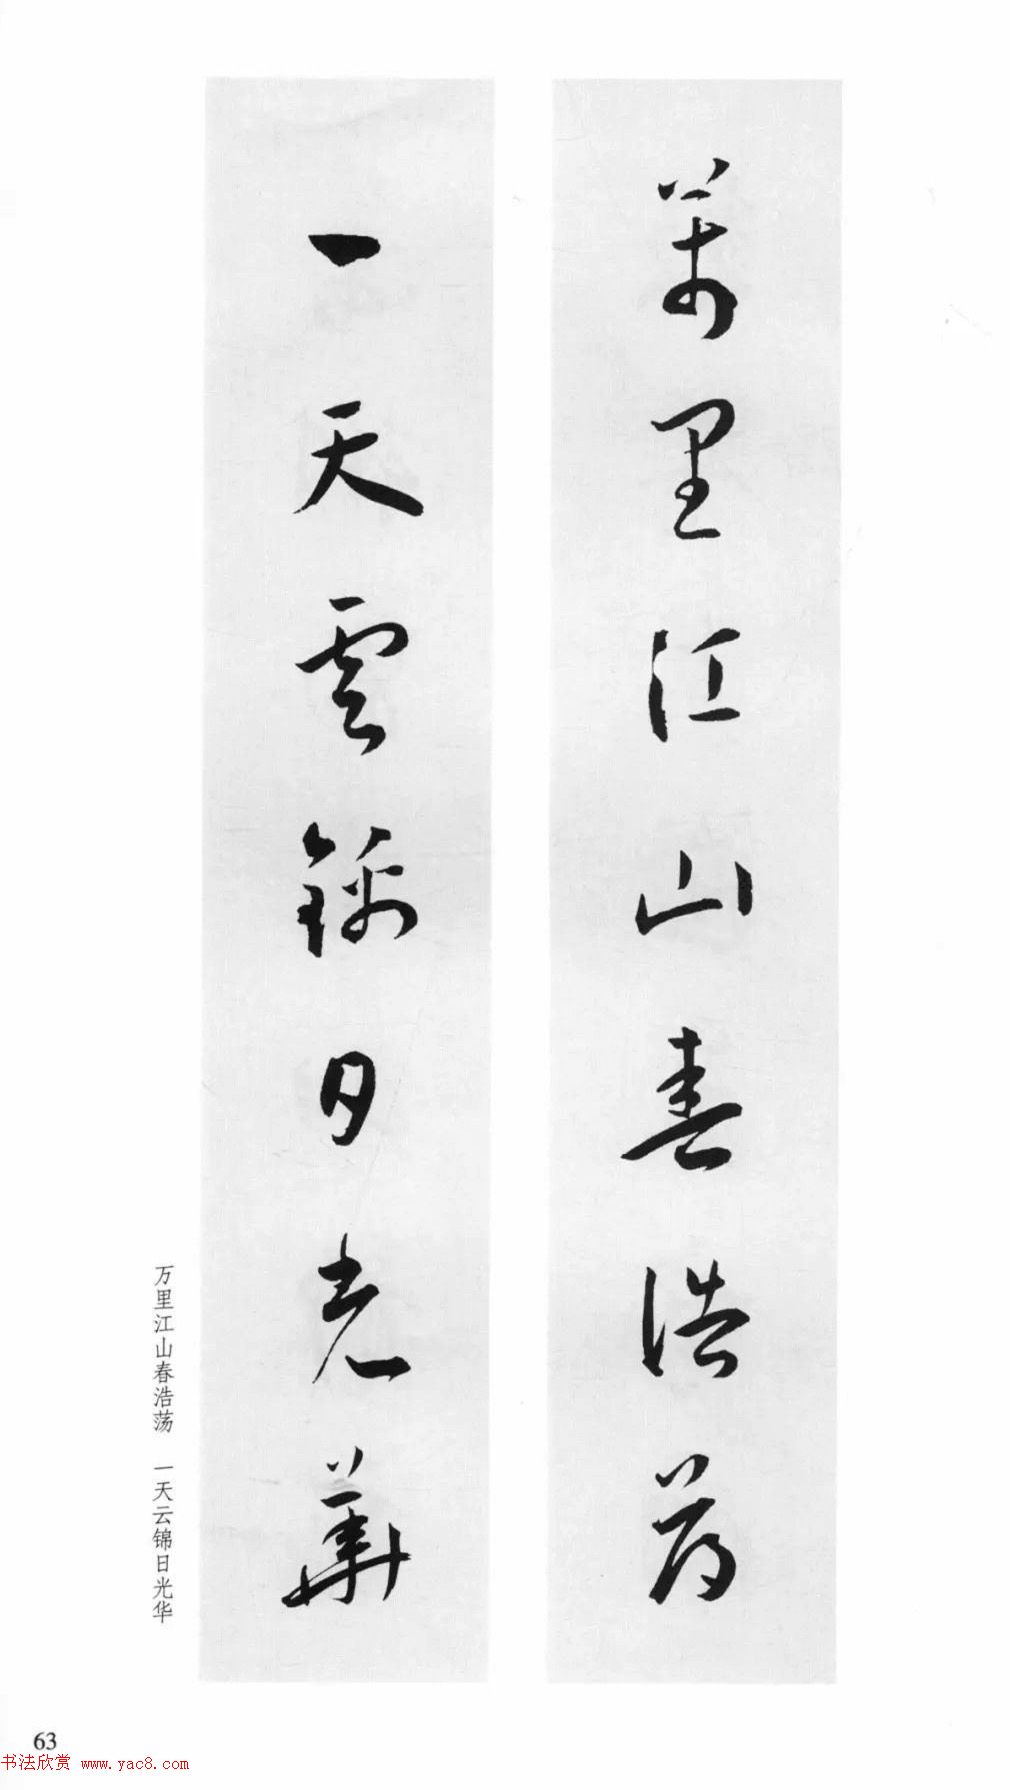 萬里江山春浩荡
一天雲錦日光華
万里江山春浩荡　一天云锦日光华
63
书法欣赏 www.yac8.com